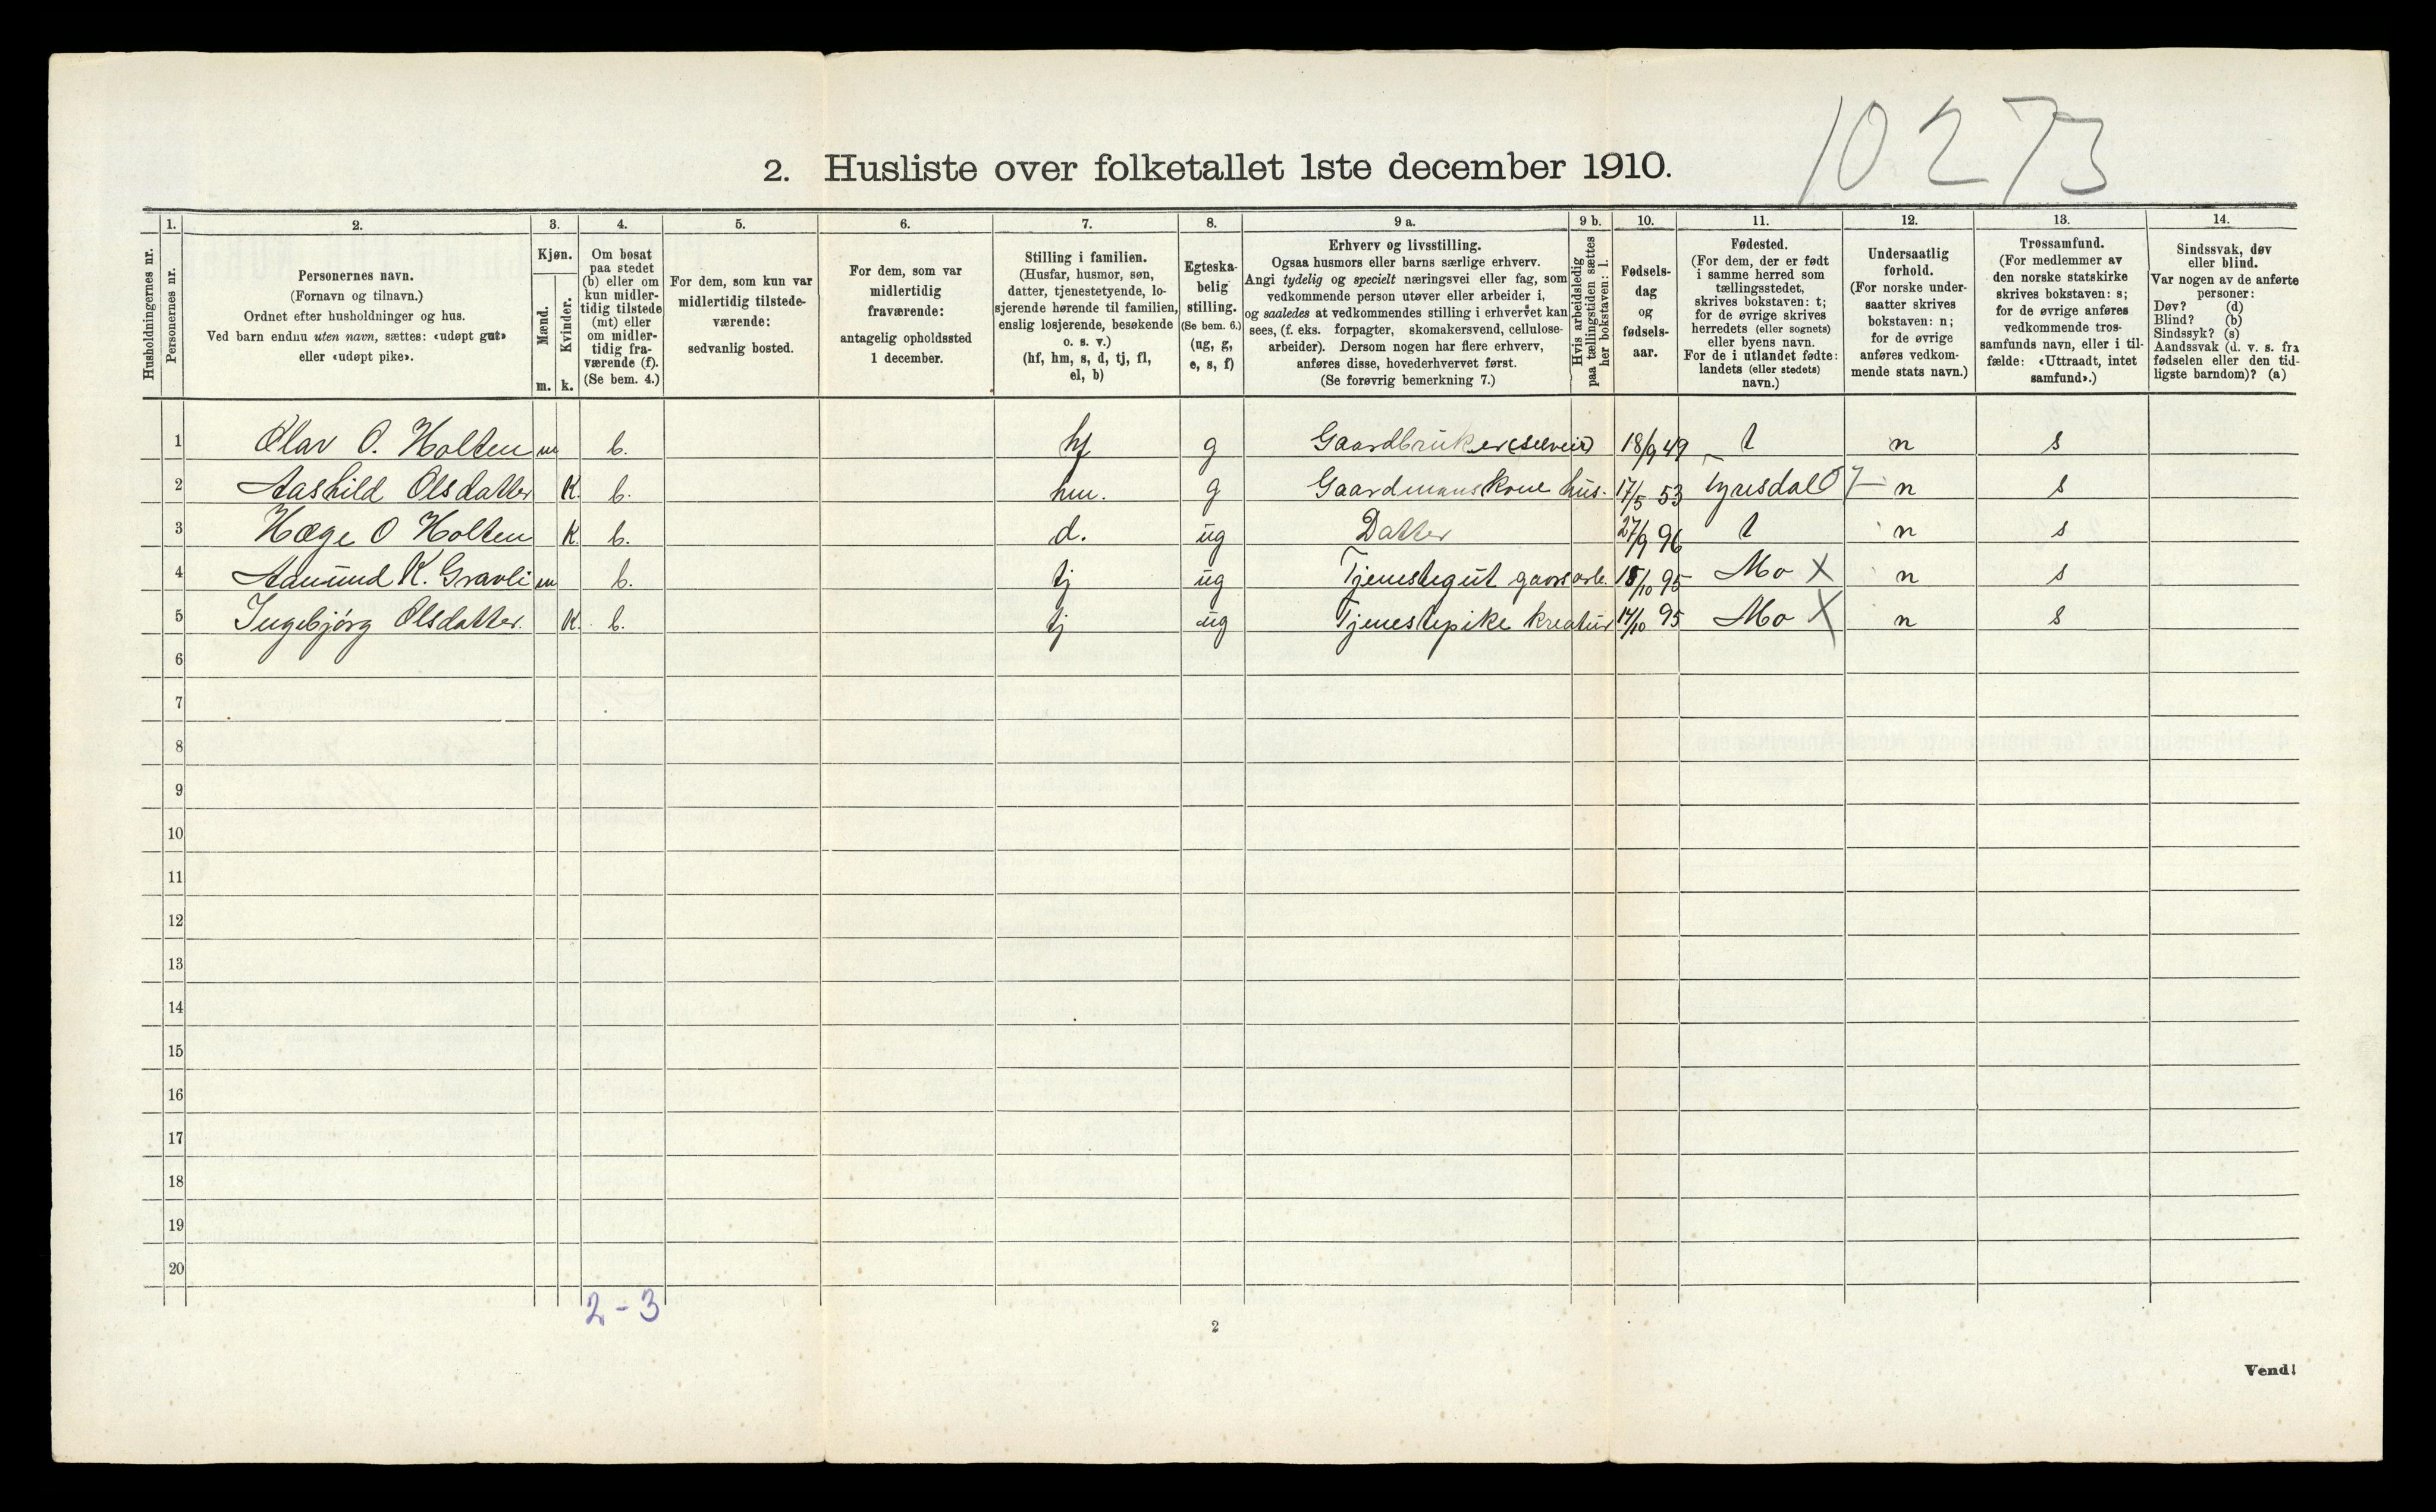 10273
2. Husliste over folketallet 1ste december 1910.
Husholdningernes nr.
1.
Personernes nr.
2.
Personernes navn.
(Fornavn og tilnavn.)
Ordnet efter husholdninger og hus.
Ved barn endnu uten navn, sættes: «udøpt gut»
eller «udøpt pike».
3.
Kjøn.
Mænd.
Kvinder.
m. k.
4.
Om bosat
paa stedet
(b) eller om
kun midler-
tidig tilstede
(mt) eller
om midler-
tidig fra-
værende (f).
(Se bem. 4.)
5.
For dem, som kun var
midlertidig tilstede-
værende:
sedvanlig bosted.
6.
For dem, som var
midlertidig
fraværende:
antagelig opholdssted
1 december.
7.
Stilling i familien.
(Husfar, husmor, søn,
datter, tjenestetyende, lo-
sjerende hørende til familien,
enslig losjerende, besøkende
o. s. v.)
(hf, hm, s, d, tj, fl,
el, b)
8.
Egteska-
belig
stilling.
(Se bem. 6.)
(ug, g,
e, s, f)
9 a.
Erhverv og livsstilling.
Ogsaa husmors eller barns særlige erhverv.
Angi tydelig og specielt næringsvei eller fag, som
vedkommende person utøver eller arbeider i,
og saaledes at vedkommendes stilling i erhvervet kan
sees, (f. eks. forpagter, skomakersvend, cellulose-
arbeider). Dersom nogen har flere erhverv,
anføres disse, hovederhvervet først.
(Se forøvrig bemerkning 7.)
9 b.
Hvis arbeidsledig
paa tællingstiden sættes
her bokstaven: l.
10.
Fødsels-
dag
og
fødsels-
aar.
11.
Fødested.
(For dem, der er født
i samme herred som
tællingsstedet,
skrives bokstaven: t;
for de øvrige skrives
herredets (eller sognets)
eller byens navn.
For de i utlandet fødte:
landets (eller stedets)
navn.)
12.
Undersaatlig
forhold.
(For norske under-
saatter skrives
bokstaven: n;
for de øvrige
anføres vedkom-
mende stats navn.)
13.
Trossamfund.
(For medlemmer av
den norske statskirke
skrives bokstaven: s;
for de øvrige anføres
vedkommende tros-
samfunds navn, eller i til-
fælde: «Uttraadt, intet
samfund».)
14.
Sindssvak, døv
eller blind.
Var nogen av de anførte
personer:
Døv? (d)
Blind? (b)
Sindssyk? (s)
Aandssvak (d. v. s. fra
fødselen eller den tid-
ligste barndom)? (a)
1 Olav O. Holten m b. hf g Gaardbruker (selveier) 18/9 49 t n s
2 Aashild Olsdatter K. b. hm. g Gaardmanskone hus. 17/5 53 Tyresdal 07 n s
3 Hæge O Holten K. b. d. ug Datter 27/9 96 t n s
4 Aamund K. Gravli m b. tj ug Tjenestegut 95 Mo X n s
5 Ingebjørg Olsdatter. K. b. tj ug Tjenestepike kreatur 14/10 95 Mo X n s
6
7
8
9
10
11
12
13
14
15
16
17
18
19
20
2 - 3
2
Vend!